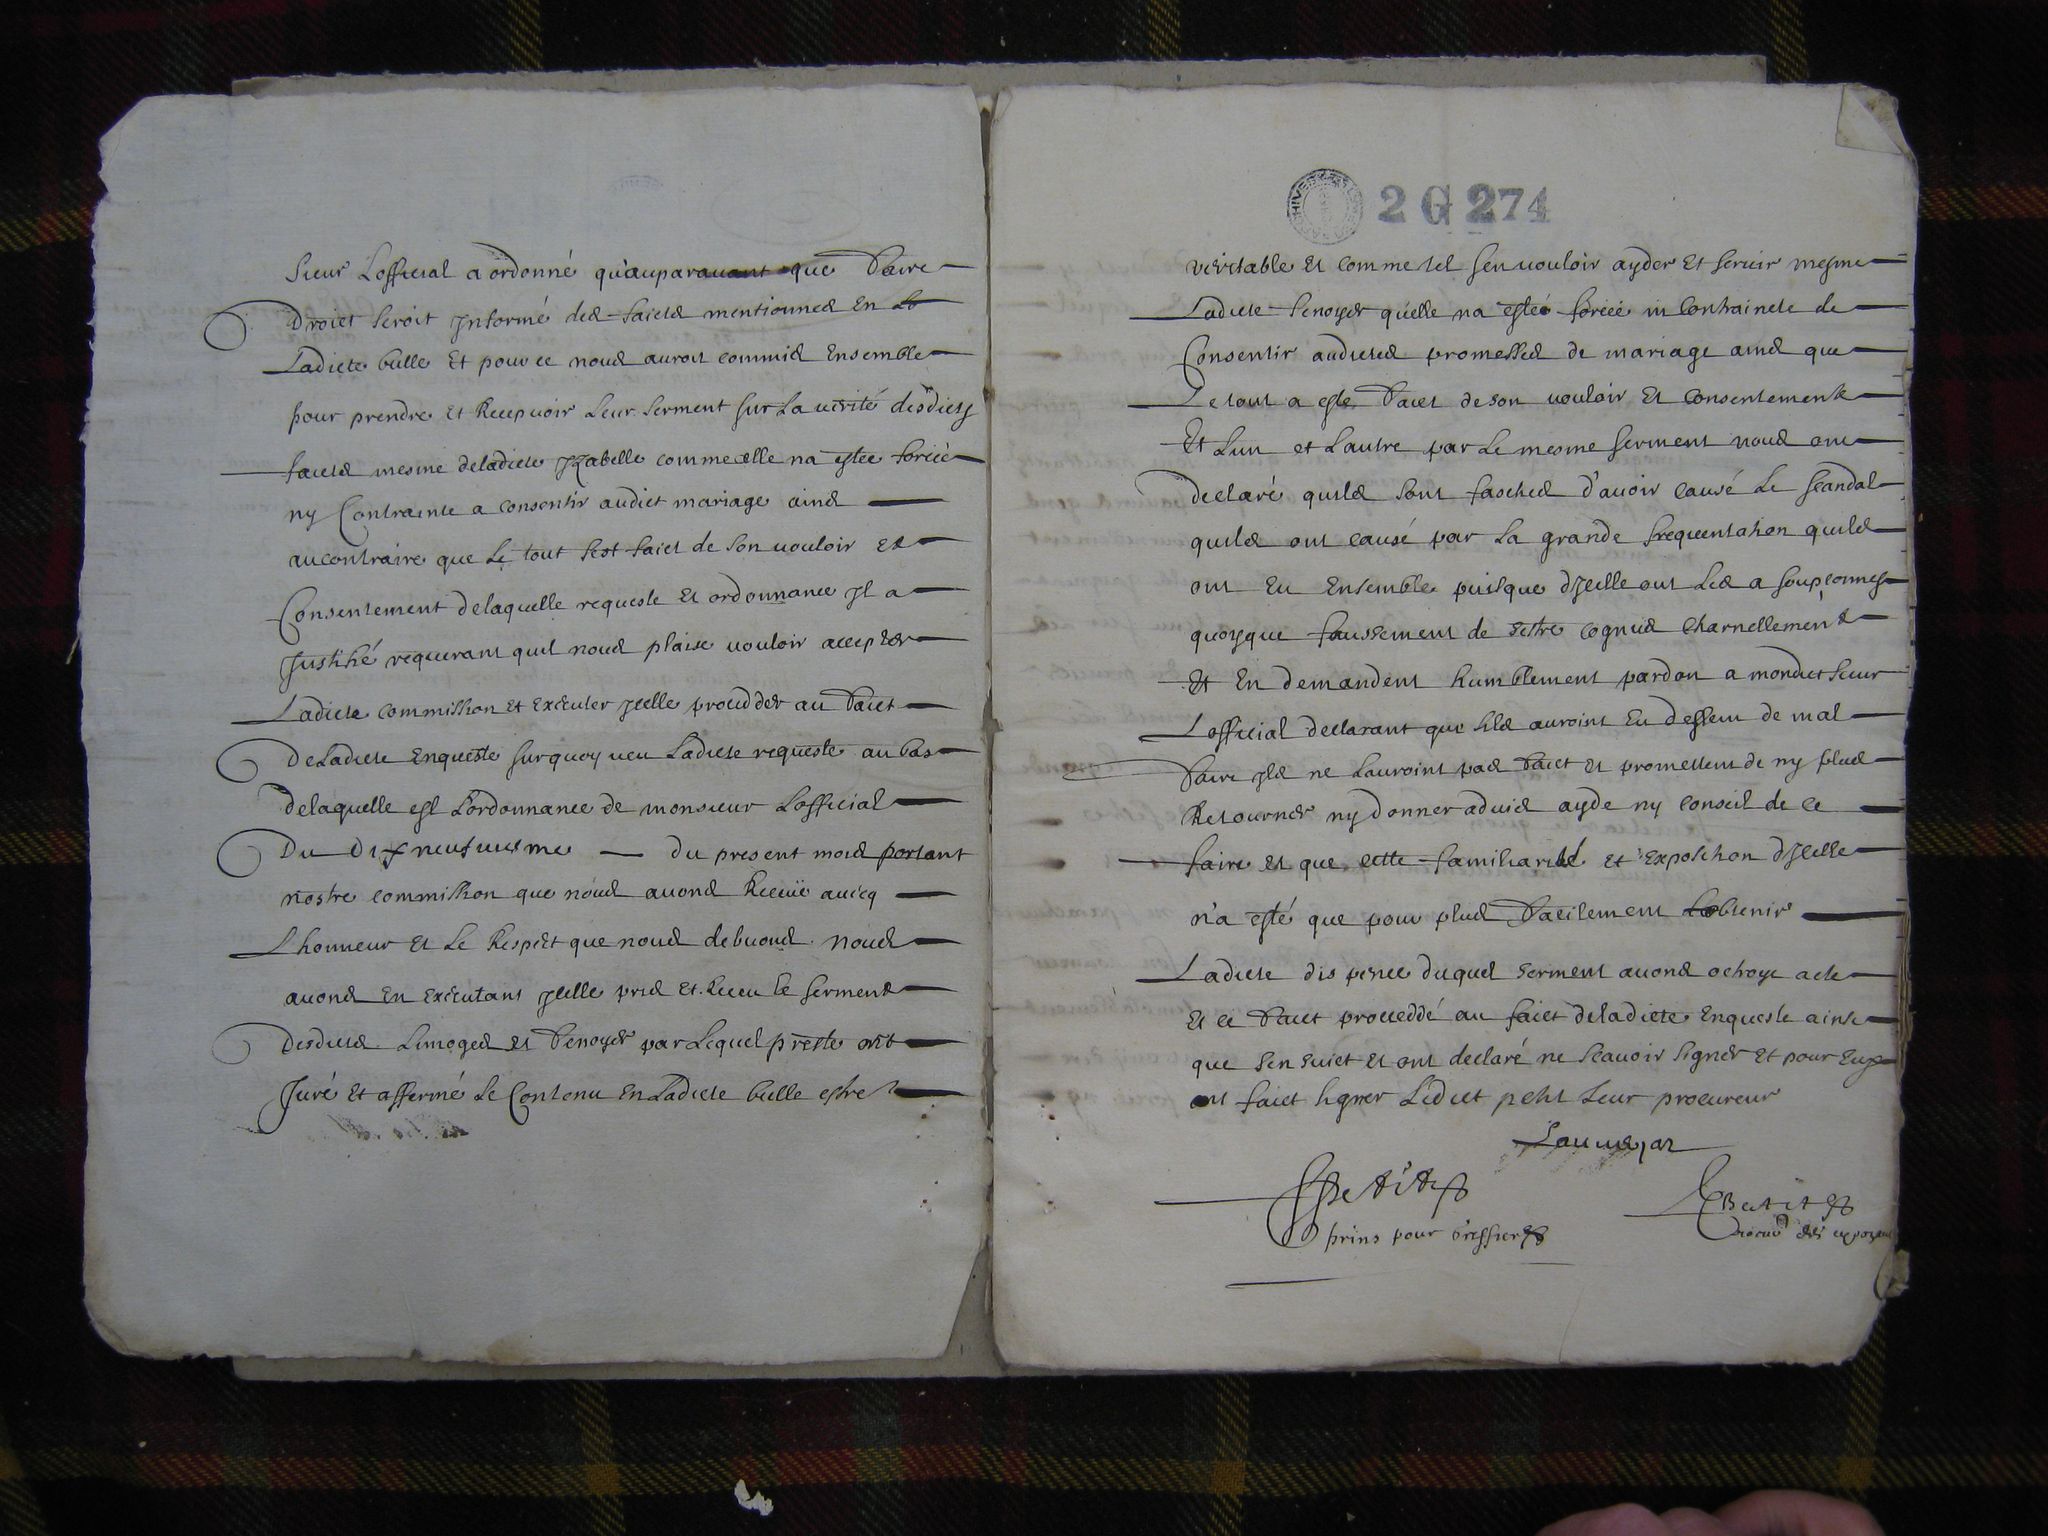 sieur Lofficial a ordonné qu'auparauant que faire
Droict seroit Informé des faictz mentionnes En La
Ladicte bulle Et pour ce nous auroit commis Ensemble
pour prendre et Recepuoir Leur serment sur La verité desdictz
faictz mesme deladicte Izabelle comme elle na estee forcée
ny Contrainte a consentir audict mariage ains
aucontraire que Le tout sest faict de son vouloir Et
Consentement delaquelle requeste Et ordonnance Il a
Justifié requerant quil nous plaise vouloir accepter
Ladicte commission Et Executer Jcelle procedder au faict
DeLadicte Enqueste surquoy veu Ladicte requeste au bas
delaquelle est L'ordonnance de monsieur Lofficial
Du Dixneufuiesme du present mois portant
nostre commission que nous auons Receüe auecq
Lhonneur Et Le Respect que nous debuons nous
auons En Executant Jcelle pris Et Receu Le serment
Desdictz Limoges Et Senoyer par Lequel presté ont
Juré Et affermé Le Contenu En Ladicte bulle estre
2 G 274
veritable Et comme tel sen vouloir ayder Et seruir mesme
Ladicte Senoyer qu'elle na estée forcée ni Contraincte de
Consentir ausdictes promesses de mariage ains que
Le tout a esté faict de son vouloir Et Consentement
Et Lun et Lautre par Le mesme serment nous ont
declaré quils sont faschés d'auoir causé Le scandal
quils ont causé par La grande frequentation quils
ont Eu Ensemble puisque dJcelle ont Les a soupçonnes
quoyque faussement de sestre cognus charnellement
Et En demandent humblement pardon a mondict sieur
Lofficial declarant que sils auroint Eu dessein de mal
faire Jls ne Lauroint pas faict Et promettent de ny plus
Retourner ny donner aduis ayde ny conseil de ce
faire Et que cette familiarité et Exposition dJcelle
n'a esté que pour plus facilement Lobtenir
Ladicte dispence duquel serment auons octroyé acte
Et ce faict proceddé au faict deladicte Enqueste ainsi
que sensuict Et ont declaré ne scauoir signer Et pour Eux
ont faict signer Ledict petit Leur procureur
Petit
Petit
prins pour greffier